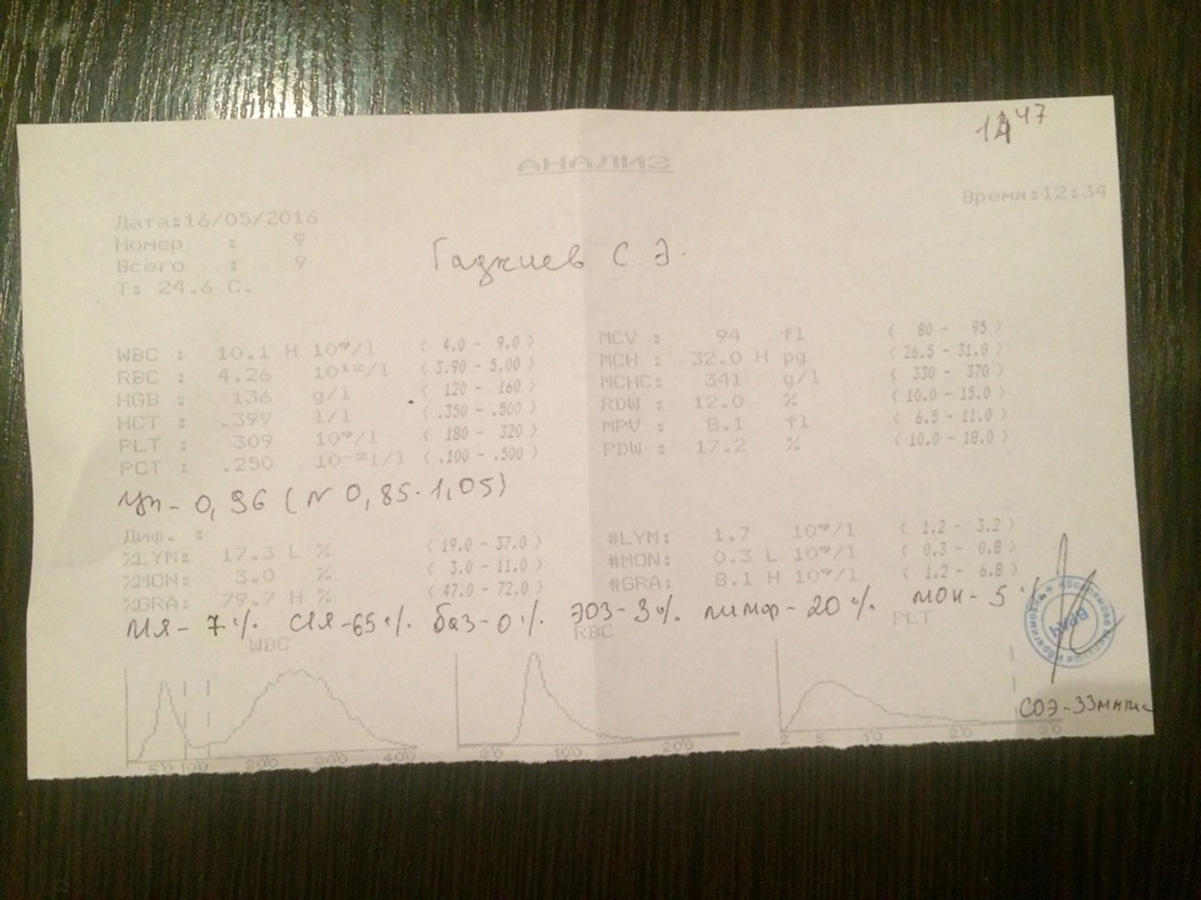 1447
АНАЛИЗ
Время:12:34
Дата:16/05/2016
Номер : 9
Всего : 9
Т: 24.6 С.
Гаджиев С.Э.
WBC : 10.1 H 10⁹/l ( 4.0 - 9.0 )
RBC : 4.26 10¹²/l ( 3.90 - 5.00 )
HGB : 136 g/l ( 120 - 160 )
HCT : .399 l/l ( .350 - .500 )
PLT : 309 10⁹/l ( 180 - 320 )
PCT : .250 10⁻²l/l ( .100 - .500 )
MCV : 94 fl ( 80 - 95 )
MCH : 32.0 H pg ( 26.5 - 31.0 )
MCHC: 341 g/l ( 330 - 370 )
RDW : 12.0 % ( 10.0 - 15.0 )
MPV : 8.1 fl ( 6.5 - 11.0 )
PDW : 17.2 % ( 10.0 - 18.0 )
цп - 0,96 (N 0,85-1,05)
Диф. :
%LYM: 17.3 L % ( 19.0 - 37.0 )
%MON: 3.0 % ( 3.0 - 11.0 )
%GRA: 79.7 H % ( 47.0 - 72.0 )
#LYM: 1.7 10⁹/l ( 1.2 - 3.2 )
#MON: 0.3 L 10⁹/l ( 0.3 - 0.8 )
#GRA: 8.1 H 10⁹/l ( 1.2 - 6.8 )
П/я - 7% С/я - 65% баз - 0% эоз - 3% лимф - 20% мон - 5%
WBC RBC PLT
ВРАЧ
СОЭ - 33мм/час
50 100 200 300 400
100 200
2 5 10 20 30